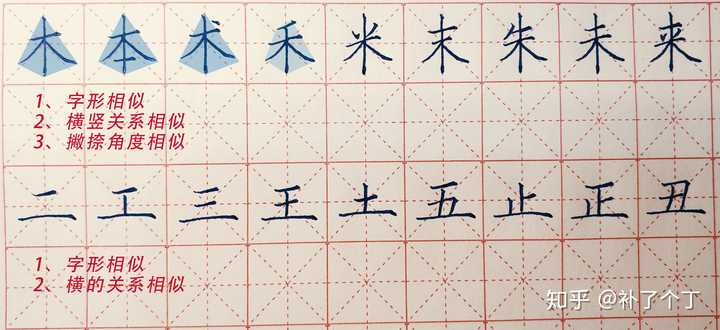 木本术禾米末朱未来
1、字形相似
2、横竖关系相似
3、撇捺角度相似
二工三王土五止正丑
1、字形相似
2、横的关系相似
知乎 @补了个丁